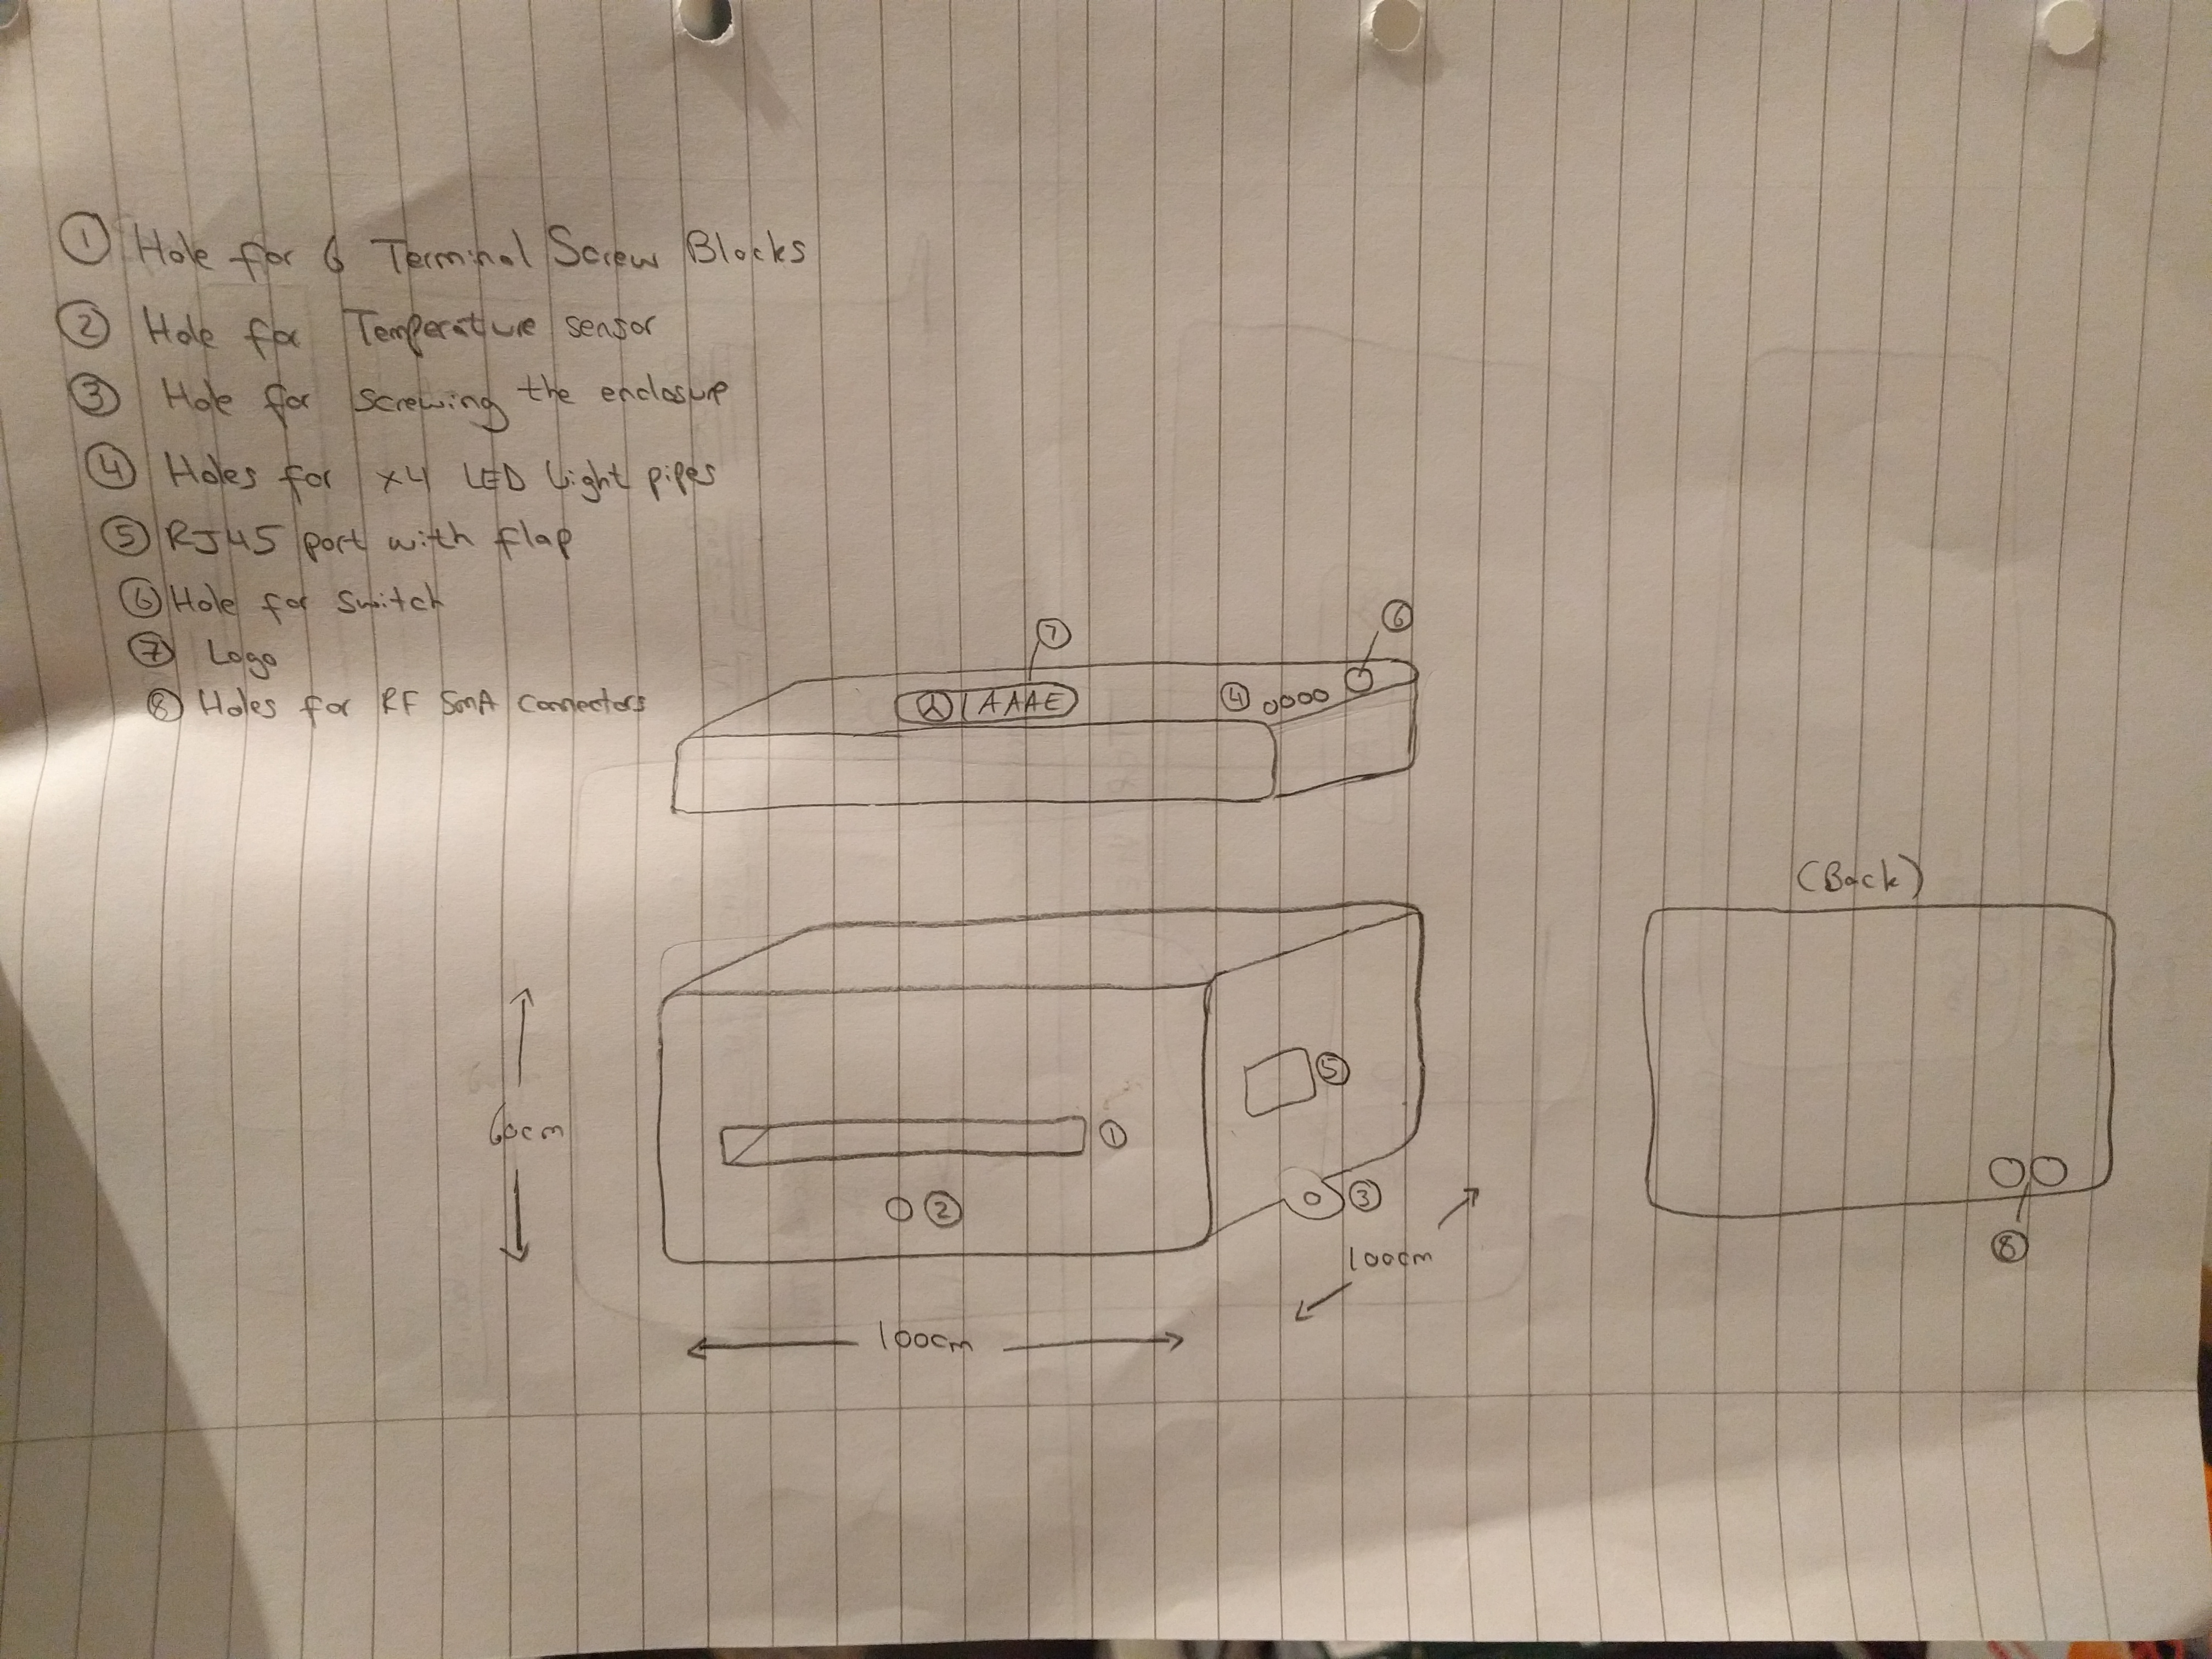 ① Hole for 6 Terminal Screw Blocks
② Hole for Temperature sensor
③ Hole for screwing the enclosure
④ Holes for x4 LED Light pipes
⑤ RJ45 port with flap
⑥ Hole for Switch
⑦ Logo
⑧ Holes for RF SMA Connectors
⑥
⑦
AAAE
④
(Back)
⑤
60cm
①
②
③
100cm
⑧
100cm